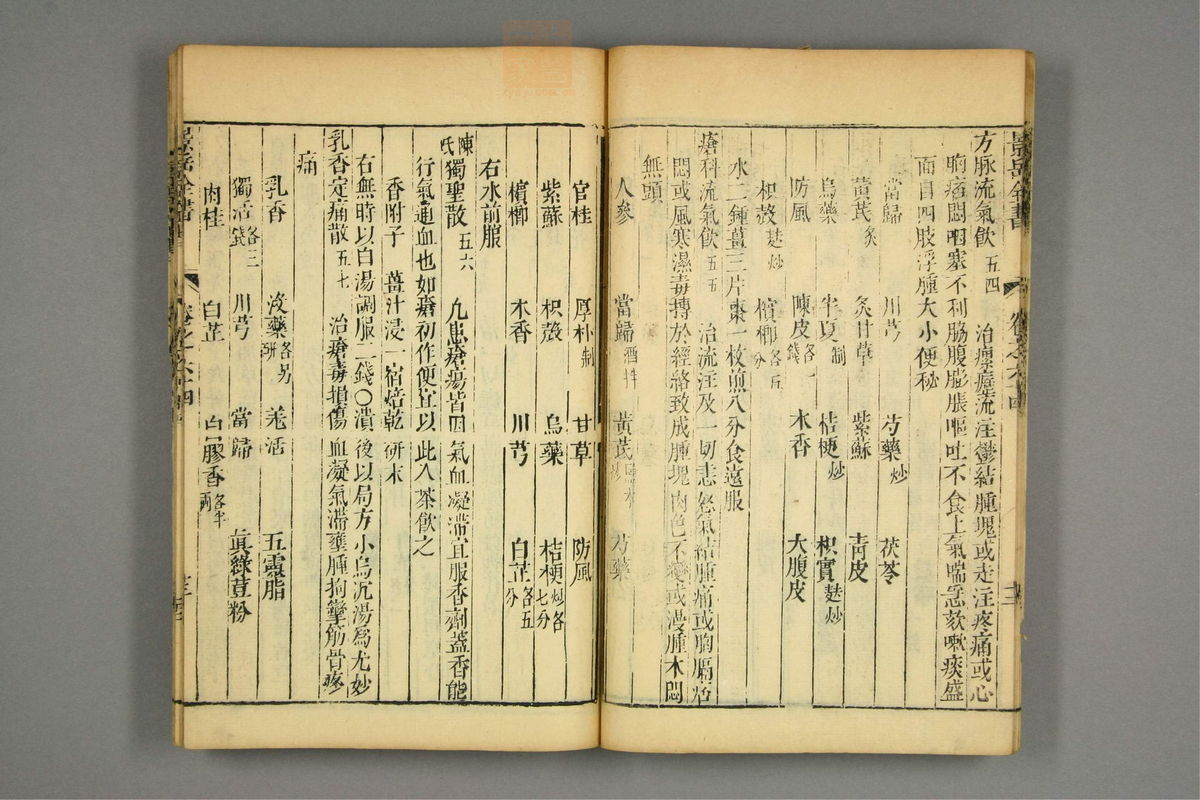 景岳全書
卷之六十四
方脉流氣飲 五四 治瘰癧流注鬱結腫塊或走注疼痛或心
胸痞悶咽塞不利脇腹膨脹嘔吐不食上氣喘急欬嗽痰盛
面目四肢浮腫大小便秘
當歸 川芎 芍藥炒 茯苓
黃芪炙 炙甘草 紫蘇 青皮
烏藥 半夏制 桔梗炒 枳實麩炒
防風 陳皮各一錢 木香 大腹皮
枳殼麩炒 檳榔各五分
水二鍾薑三片棗一枚煎八分食遠服
瘡科流氣飲 五五 治流注及一切恚怒氣結腫痛或胸膈痞
悶或風寒濕毒搏於經絡致成腫塊肉色不變或漫腫木悶
無頭
人參 當歸酒拌 黃芪鹽水炒 芍藥
官桂 厚朴制 甘草 防風
紫蘇 枳殼 烏藥 桔梗炒各七分
檳榔 木香 川芎 白芷各五分
右水煎服
陳氏獨聖散 五六 凡患瘡瘍皆因氣血凝滯宜服香劑蓋香能
行氣通血也如瘡初作便宜以此入茶飲之
香附子 薑汁浸一宿焙乾研末
右無時以白湯調服二錢〇潰後以局方小烏沉湯爲尤妙
乳香定痛散 五七 治瘡毒損傷血凝氣滯壅腫拘攣筋骨疼
痛
乳香 沒藥各另研 羌活 五靈脂
獨活各三錢 川芎 當歸 眞綠荳粉
肉桂 白芷 白膠香各半兩
景岳全書
卷之六十四